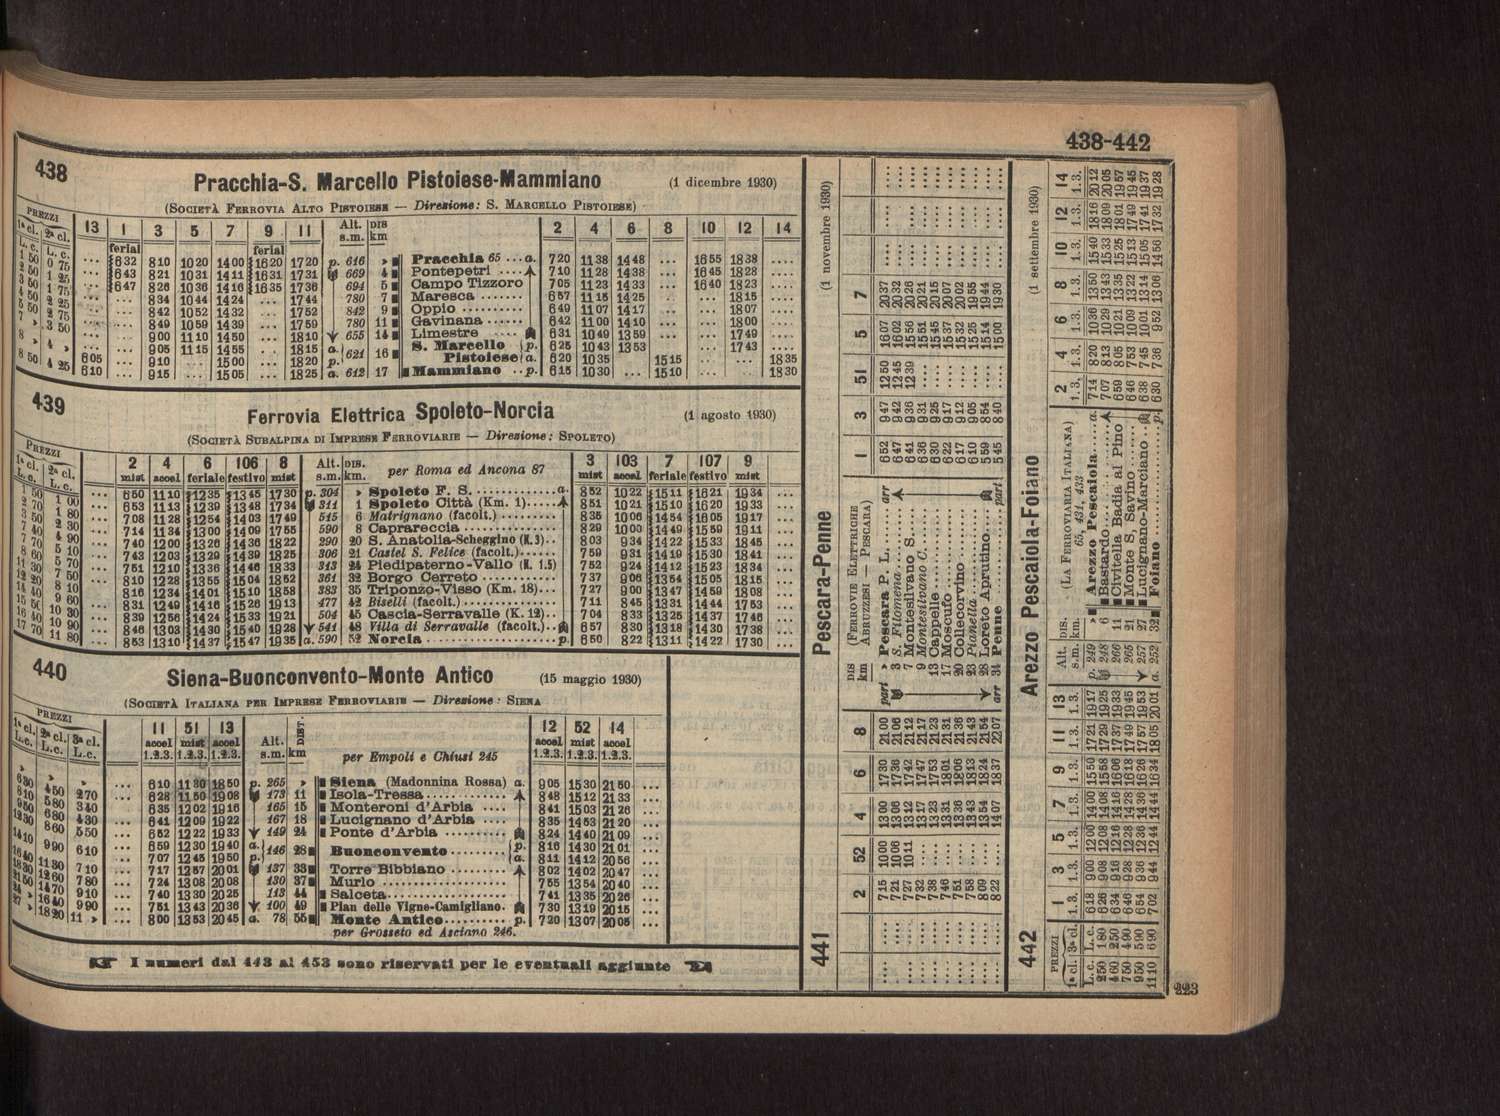 438-442
438
Pracchia-S. Marcello Pistoiese-Mammiano (1 dicembre 1930)
(SOCIETÀ FERROVIA ALTO PISTOIESE — Direzione: S. MARCELLO PISTOIESE)
PREZZI 13 1 3 5 7 9 11 Alt. s.m. DIS km 2 4 6 8 10 12 14
1ª cl. 2ª cl. ferial ferial
L. c. L. c.
... 6 32 8 10 10 20 14 00 16 20 17 20 p. 616 » Pracchia 65 ... a. 7 20 11 38 14 48 ... 16 55 18 38 ....
... 6 43 8 21 10 31 14 11 16 31 17 31 669 4 Pontepetri .... 7 10 11 28 14 38 ... 16 45 18 28 ....
... 6 47 8 26 10 36 14 16 16 35 17 36 694 5 Campo Tizzoro 7 05 11 23 14 33 ... 16 40 18 23 ....
... ... 8 34 10 44 14 24 ... 17 44 780 7 Maresca ....... 6 57 11 15 14 25 ... ... 18 15 ....
... ... 8 42 10 52 14 32 ... 17 52 842 9 Oppio .......... 6 49 11 07 14 17 ... ... 18 07 ....
... ... 8 49 10 59 14 39 ... 17 59 780 11 Gavinana ....... 6 42 11 00 14 10 ... ... 18 00 ....
... ... 9 00 11 10 14 50 ... 18 10 655 14 Limestre .... 6 31 10 49 13 59 ... ... 17 49 ....
... ... 9 05 11 15 14 55 ... 18 15 a. 621 16 S. Marcello p. 6 25 10 43 13 53 ... ... 17 43 ....
6 05 ... 9 10 ... 15 00 ... 18 20 p. Pistoiese a. 6 20 10 35 15 15 ... ... 18 35
6 10 ... 9 15 ... 15 05 ... 18 25 a. 612 17 Mammiano .. p. 6 15 10 30 ... 15 10 ... ... 18 30
439
Ferrovia Elettrica Spoleto-Norcia (1 agosto 1930)
(SOCIETÀ SUBALPINA DI IMPRESE FERROVIARIE — Direzione: SPOLETO)
PREZZI 2 4 6 106 8 Alt. DIS. per Roma ed Ancona 87 3 103 7 107 9
1ª cl. 2ª cl. mist accel feriale festivo mist s.m. km. mist accel feriale festivo mist
L. c. L. c.
... 6 50 11 10 12 35 13 45 17 30 p. 304 » Spoleto F. S. ............ a. 8 52 10 22 15 11 16 21 19 34 ...
... 6 53 11 13 12 39 13 48 17 34 311 1 Spoleto Città (Km. 1)..... 8 51 10 21 15 10 16 20 19 33 ...
... 7 08 11 28 12 54 14 03 17 49 545 6 Matrignano (facolt.)........ 8 35 10 06 14 54 16 05 19 17 ...
... 7 14 11 34 13 00 14 09 17 55 590 8 Caprareccia ............. 8 29 10 00 14 49 15 59 19 11 ...
... 7 40 12 00 13 26 14 36 18 22 290 20 S. Anatolia-Scheggino (K. 3).. 8 03 9 34 14 22 15 33 18 45 ...
... 7 43 12 03 13 29 14 39 18 25 306 21 Castel S. Felice (facolt.)...... 7 59 9 31 14 19 15 30 18 41 ...
... 7 51 12 10 13 36 14 46 18 33 313 24 Piedipaterno-Vallo (K. 1.5) 7 52 9 24 14 12 15 23 18 34 ...
... 8 10 12 28 13 55 15 04 18 52 361 32 Borgo Cerreto ............ 7 37 9 06 13 54 15 05 18 15 ...
... 8 16 12 34 14 01 15 10 18 58 383 35 Triponzo-Visso (Km. 18)... 7 27 9 00 13 47 14 59 18 08 ...
... 8 31 12 49 14 16 15 26 19 13 477 42 Biselli (facolt.)............. 7 11 8 45 13 31 14 44 17 53 ...
... 8 39 12 56 14 24 15 33 19 21 504 45 Cascia-Serravalle (K. 12).. 7 04 8 33 13 25 14 37 17 46 ...
... 8 46 13 03 14 30 15 40 19 28 541 48 Villa di Serravalle (facolt.).. 6 57 8 30 13 18 14 30 17 38 ...
... 8 53 13 10 14 37 15 47 19 35 a. 590 52 Norcia .................. p. 6 50 8 22 13 11 14 22 17 30 ...
440
Siena-Buonconvento-Monte Antico (15 maggio 1930)
(SOCIETÀ ITALIANA PER IMPRESE FERROVIARIE — Direzione: SIENA
PREZZI 11 51 13 Alt. DIST. 12 52 14
1ª cl. 2ª cl. 3ª cl. accel mist accel s.m. km per Empoli e Chiusi 245 accel mist accel
L. c. L. c. L. c. 1.2.3. 1.2.3. 1.2.3. 1.2.3. 1.2.3. 1.2.3.
... 6 10 11 30 18 50 p. 265 » Siena (Madonnina Rossa) a. 9 05 15 30 21 50 ...
... 6 28 11 50 19 08 173 11 Isola-Tressa ............. 8 48 15 12 21 33 ...
... 6 35 12 02 19 16 165 15 Monteroni d'Arbia .... 8 41 15 03 21 26 ...
... 6 41 12 09 19 22 167 18 Lucignano d'Arbia .... 8 35 14 53 21 20 ...
... 6 52 12 22 19 33 149 24 Ponte d'Arbia .......... 8 24 14 40 21 09 ...
... 6 59 12 30 19 40 a. 146 28 Buonconvento ........ p. 8 16 14 30 21 01 ...
7 07 12 45 19 50 p. a. 8 11 14 12 20 56
... 7 17 12 57 20 01 137 33 Torre Bibbiano ......... 8 02 14 02 20 47 ...
... 7 24 13 08 20 08 130 37 Murlo ................ 7 55 13 54 20 40 ...
... 7 40 13 30 20 25 113 44 Salceta................ 7 41 13 35 20 26 ...
... 7 51 13 43 20 36 100 49 Pian delle Vigne-Camigliano. 7 30 13 19 20 15 ...
... 8 00 13 53 20 45 a. 78 55 Monte Antico.......... p. 7 20 13 07 20 05 ...
per Grosseto ed Asciano 246.
I numeri dal 443 al 453 sono riservati per le eventuali aggiunte
441
Pescara-Penne
(1 novembre 1930)
(FERROVIE ELETTRICHE ABRUZZESI — PESCARA)
2 52 4 6 8 DIS km 1 3 51 5 7
7 15 10 00 13 00 17 30 21 00 part » Pescara P. L. .... arr 6 52 9 47 12 50 16 07 20 37
7 21 10 06 13 06 17 36 21 06 3 S. Filomena..... 6 47 9 42 12 45 16 02 20 32
7 27 10 11 13 12 17 42 21 12 7 Montesilvano S. 6 41 9 36 12 39 15 56 20 26
7 32 .... 13 17 17 47 21 17 9 Montesilvano C. 6 36 9 31 .... 15 51 20 21
7 38 .... 13 23 17 53 21 23 13 Cappelle......... 6 30 9 25 .... 15 45 20 15
7 46 .... 13 31 18 01 21 31 17 Moscufo ......... 6 22 9 17 .... 15 37 20 07
7 51 .... 13 36 18 06 21 36 20 Collecorvino .... 6 17 9 12 .... 15 32 20 02
7 58 .... 13 43 18 13 21 43 23 Pianella ......... 6 10 9 05 .... 15 25 19 55
8 09 .... 13 54 18 24 21 54 28 Loreto Aprutino.... 5 59 8 54 .... 15 14 19 44
8 22 .... 14 07 18 37 22 07 arr 34 Penne .......... part 5 45 8 40 .... 15 00 19 30
442
Arezzo Pescaiola-Foiano
(1 settembre 1930)
(LA FERROVIARIA ITALIANA)
65, 431, 433
PREZZI 1 3 5 7 9 11 13 Alt. DIS. 2 4 6 8 10 12 14
1ª cl. 3ª cl. 1.3. 1.3. 1.3. 1.3. 1.3. 1.3. 1.3. s.m. km. 1.3. 1.3. 1.3. 1.3. 1.3. 1.3. 1.3.
L. c. L. c. 6 18 9 00 12 00 14 00 15 50 17 21 19 17 p. 249 » Arezzo Pescaiola..... a. 7 14 8 20 10 36 13 50 15 40 18 16 20 12
2 50 1 80 6 26 9 08 12 08 14 08 15 58 17 29 19 25 248 6 Bastardo............ 7 07 8 13 10 29 13 43 15 33 18 09 20 05
4 60 2 50 6 34 9 16 12 16 14 16 16 06 17 37 19 33 266 11 Civitella Badia al Pino 6 59 8 05 10 21 13 35 15 25 18 01 19 57
7 50 4 90 6 46 9 28 12 28 14 28 16 18 17 49 19 45 265 21 Monte S. Savino....... 6 46 7 53 10 09 13 22 15 13 17 49 19 45
9 50 5 90 6 54 9 36 12 36 14 36 16 26 17 57 19 53 257 27 Lucignano-Marciano .. 6 38 7 45 10 01 13 14 15 05 17 41 19 37
11 10 6 90 7 02 9 44 12 44 14 44 16 34 18 05 20 01 a. 252 32 Foiano ............. p. 6 30 7 36 9 52 13 06 14 56 17 32 19 28
223